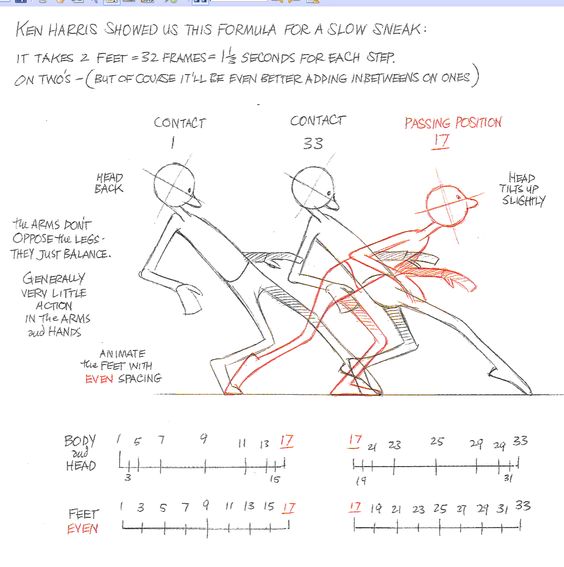 KEN HARRIS SHOWED US THIS FORMULA FOR A SLOW SNEAK:
IT TAKES 2 FEET = 32 FRAMES = 1 1/3 SECONDS FOR EACH STEP.
ON TWO'S – (BUT OF COURSE IT'LL BE EVEN BETTER ADDING INBETWEENS ON ONES)
CONTACT
1
CONTACT
33
PASSING POSITION
17
HEAD
BACK
HEAD
TILTS UP
SLIGHTLY
the ARMS DON'T
OPPOSE the LEGS -
THEY JUST BALANCE.
GENERALLY
VERY LITTLE
ACTION
IN THE ARMS
and HANDS
ANIMATE
the FEET WITH
EVEN SPACING
BODY
and
HEAD
1 5 7 9 11 13 17
3 15
17 21 23 25 29 29 33
19 31
FEET
EVEN
1 3 5 7 9 11 13 15 17
17 19 21 23 25 27 29 31 33